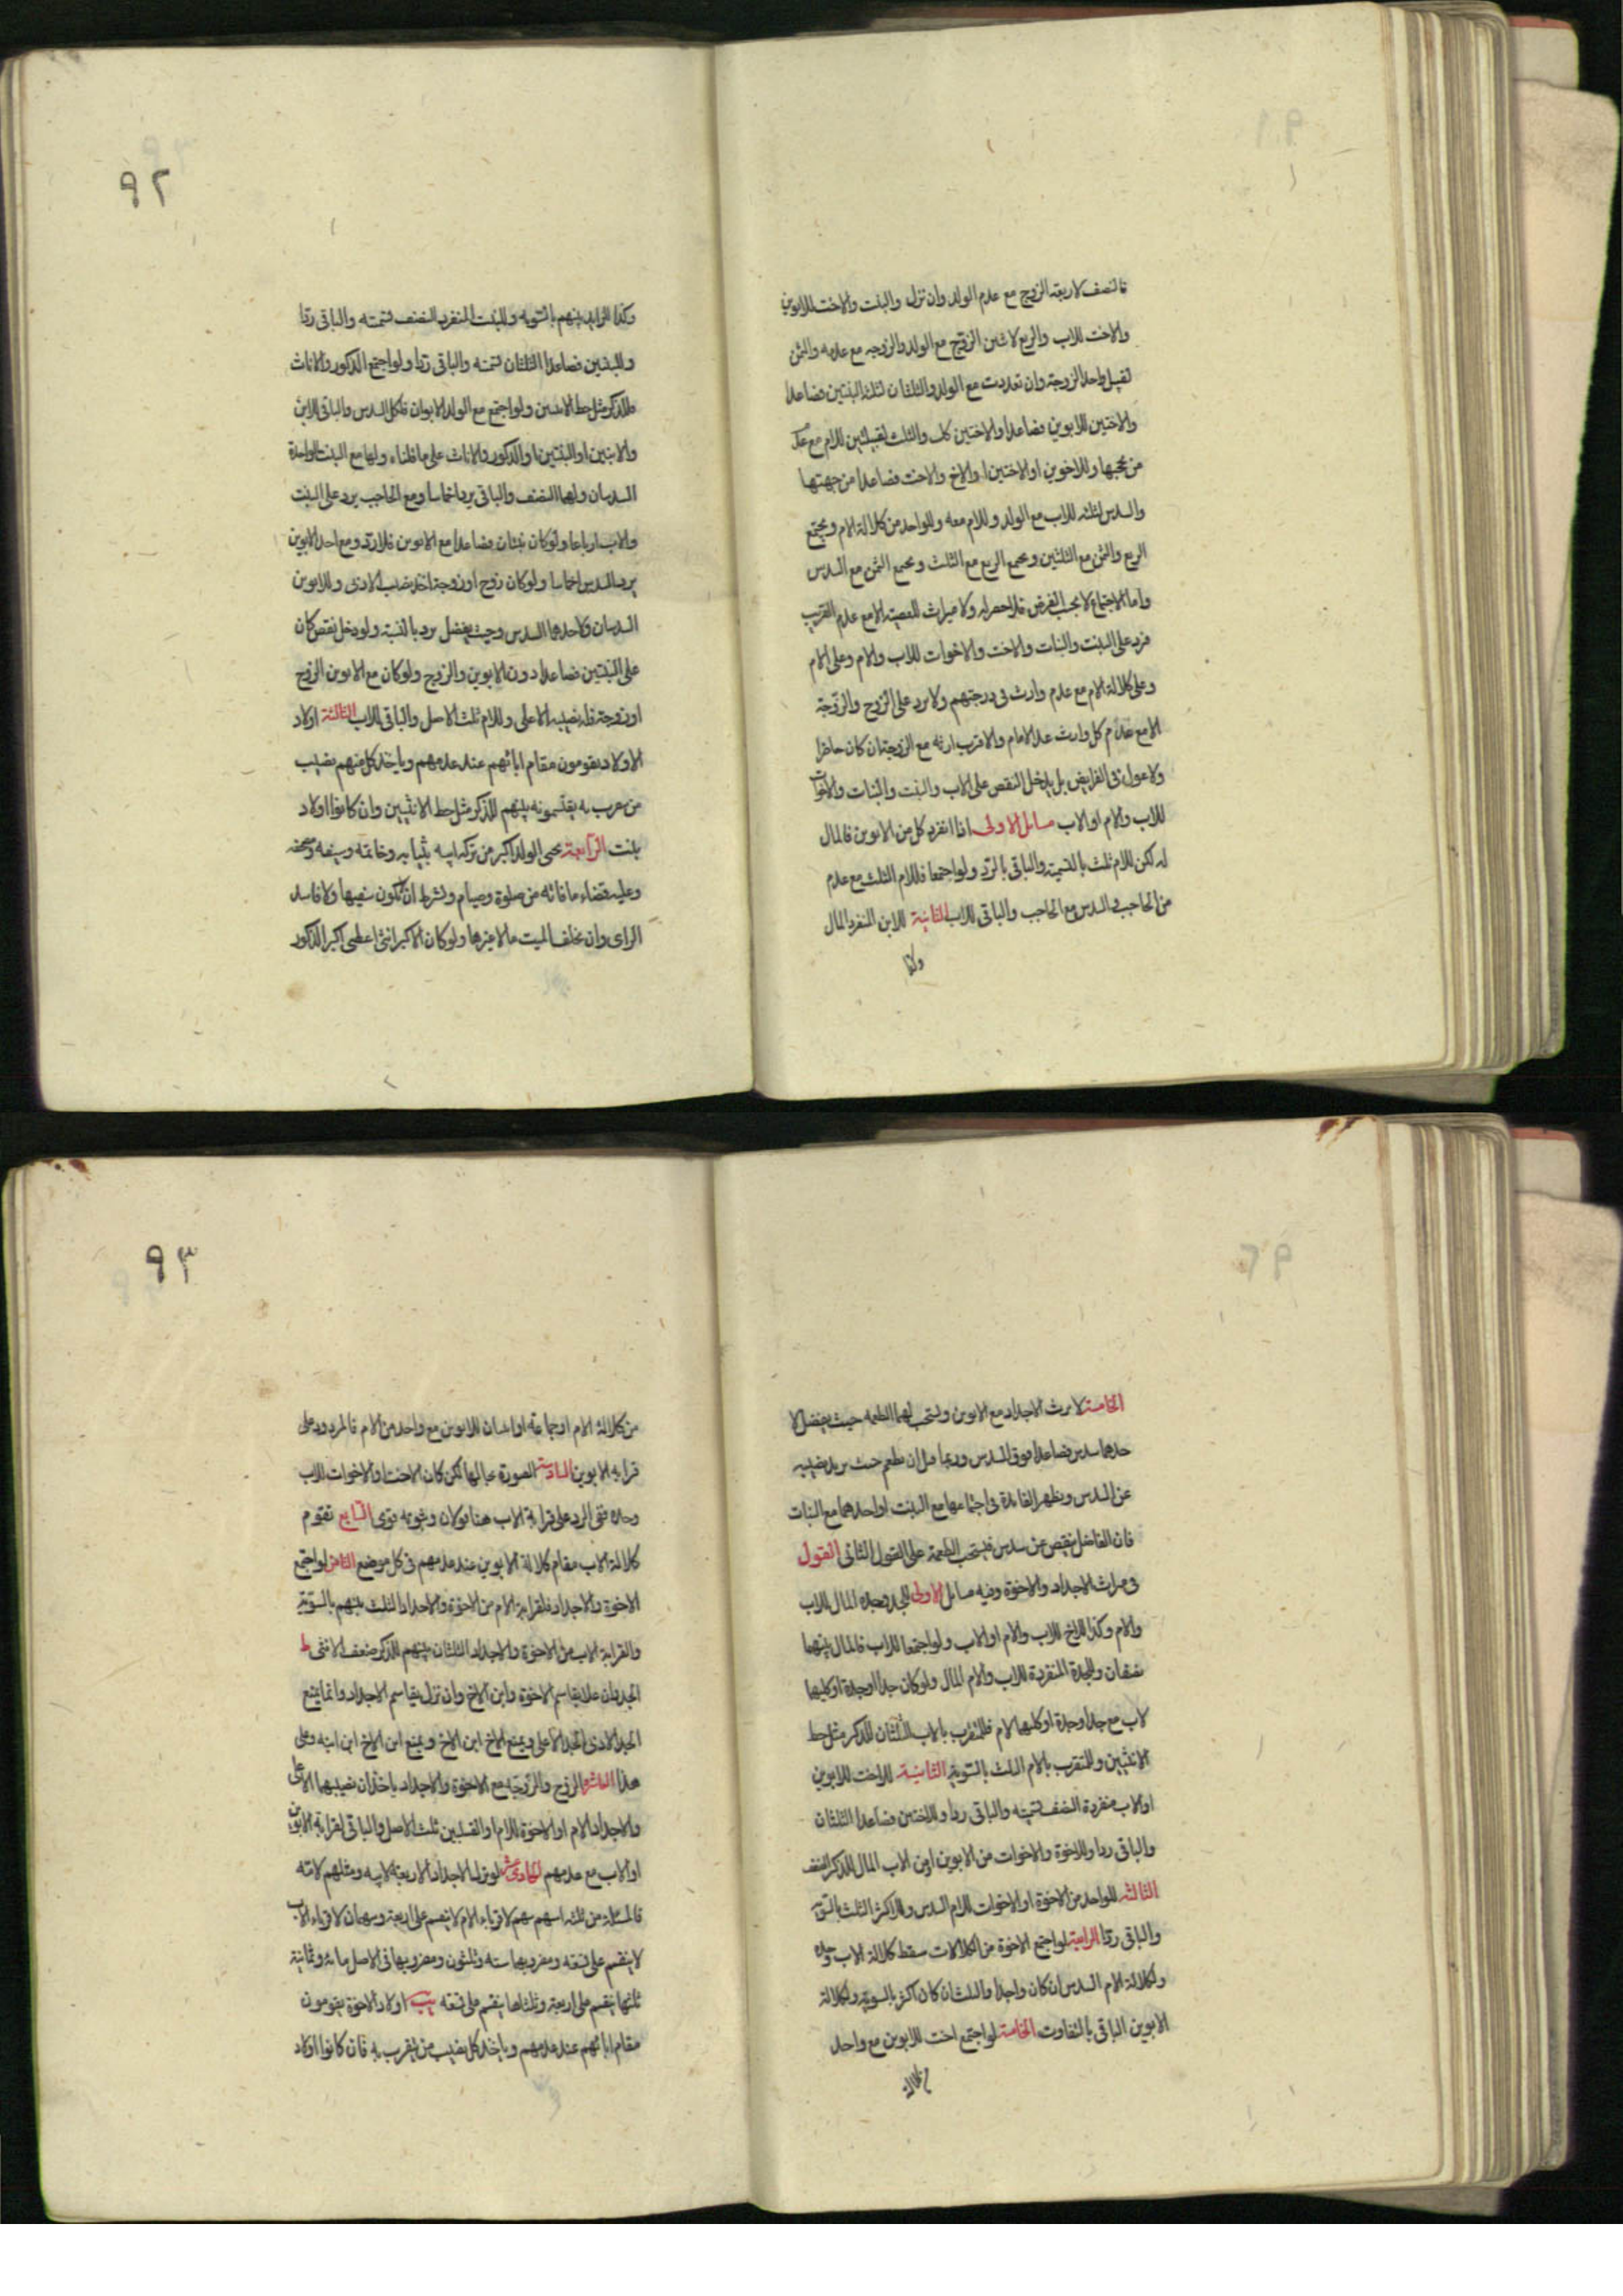 فالنصف لاربعة الزوج مع عدم الولد وان نزل والبنت والاخت للابوين
والاخت للاب والربع لاثنين الزوج مع الولد والزوجه مع عدمه والثمن
لقبيل واحد الزوجة وان تعددت مع الولد والثلثان لثلثة البنتين فصاعدا
والاختين للابوين فصاعدا والاختين كك والثلث لقبيلتين للام مع عدم
من يحجبها وللاخوين او الاختين او الاخ والاخت فصاعدا من جهتها
والسدس لثلثه للاب مع الولد وللام معه وللواحد من كلالة الام ويجتمع
الربع والثمن مع الثلثين ويجمع الربع مع الثلث ويجمع الثمن مع السدس
واما الاجتماع لا بحسب الفرض فلا حصر له ولا ميراث للعصبة الا مع عدم القريب
فيرد على البنت والبنات والاخت والاخوات للاب والام وعلى الام
وعلى كلالة الام مع عدم وارث فى درجتهم ولا يرد على الزوج والزوجة
الا مع عدم كل وارث عدا الامام والاقرب ارثه مع الزوجة ان كان حاضرا
ولا عول فى الفرايض بل يدخل النقص على الاب والبنت والبنات والاخوات
للاب والام او الاب مسائل الاولى اذا انفرد كل من الابوين فالمال
له لكن للام ثلث بالتسمية والباقى بالرد ولو اجتمعا فللام الثلث مع عدم
من الحاجب والسدس مع الحاجب والباقى للاب الثانية للابن المنفرد المال
وكذا
٩٢
وكذا للزايد بينهم بالسويه وللبنت المنفرد النصف تسمته والباقى ردا
وللبنتين فصاعدا الثلثان تسمته والباقى ردا ولو اجتمع الذكور والاناث
فللذكر مثل حظ الانثيين ولو اجتمع مع الولد الابوان فلكل السدس والباقى للابن
والابنين او البنتين او الذكور والاناث على ما قلناه ولهما مع البنت الواحدة
السدسان ولها النصف والباقى يرد اخماسا ومع الحاجب يرد على البنت
والاب ارباعا ولو كان بنتان فصاعدا مع الابوين فلا رد ومع احد الابوين
يرد السدس اخماسا ولو كان زوج او زوجة اخذ نصيبه الادنى وللابوين
السدسان ولاحدهما السدس وحيث يفضل يرد بالنسبة ولو دخل نقص كان
على البنتين فصاعدا دون الابوين والزوج ولو كان مع الابوين الزوج
او زوجة فله نصيبه الاعلى وللام ثلث الاصل والباقى للاب الثالثة اولاد
الاولاد يقومون مقام ابائهم عند عدمهم وياخذ كل منهم نصيب
من يتقرب به يقتسمونه بينهم للذكر مثل حظ الانثيين وان كانوا اولاد
بنت الرابعة يحبى الولد الاكبر من تركة ابيه بثيابه وخاتمه وسيفه ومصحفه
وعليه قضاء ما فاته من صلوة وصيام وشرط ان لا يكون سفيها ولا فاسد
الراى وان يخلف الميت مالا غيرها ولو كان الاكبر انثى اعطى اكبر الذكور
الخامسة لا يرث الاجداد مع الابوين ويستحب لهما الطعمه حيث يفضل لا
حدهما سدس فصاعدا فوق السدس وربما قيل ان يطعم حيث يزيد نصيبه
عن السدس ويظهر الفائدة فى اجتماعهما مع البنت او احدهما مع البنات
فان الفاضل ينقص عن سدس فيستحب الطعمة على القول الثانى القول
فى ميراث الاجداد والاخوة وفيه مسائل الاولى للجد وحده المال للاب
والام وكذا الاخ للاب والام او الاب ولو اجتمعا للاب فالمال بينهما
نصفان وللجدة المنفردة للاب والام المال ولو كان جدا او جدة او كليهما
لاب مع جد او جدة او كليهما لام فللمتقرب بالاب الثلثان للذكر مثل حظ
الانثيين وللمتقرب بالام الثلث بالسوية الثانية للاخت للابوين
او لاب منفردة النصف تسميته والباقى ردا وللاختين فصاعدا الثلثان
والباقى ردا وللاخوة والاخوات من الابوين او من الاب المال للذكر الضعف
الثالثه للواحد من الاخوة او الاخوات للام السدس وللاكثر الثلث بالسوية
والباقى ردا الرابعة لو اجتمع الاخوة من الكلالات سقط كلالة الاب وحده
ولكلالة الام السدس ان كان واحدا والثلث ان كان اكثر بالسوية ولكلالة
الابوين الباقى بالتفاوت الخامسة لو اجتمع اخت للابوين مع واحد
من كلالة
٩٣
من كلالة الام او جماعة او اختان للابوين مع واحد من الام فالمردود على
قرابة الابوين السادسة الصورة بحالها لكن كان الاخت او الاخوات للاب
وحده ففى الرد على قرابة الاب هنا قولان وثبوته قوى السابع تقوم
كلالة الاب مقام كلالة الابوين عند عدمهم فى كل موضع الثامن لو اجتمع
الاخوة والاجداد فلقرابة الام من الاخوة والاجداد الثلث بينهم بالسوية
والقرابة الاب من الاخوة والاجداد الثلثان بينهم للذكر ضعف الانثى ط
الجد وان علا يقاسم الاخوة وابن الاخ وان نزل يقاسم الاجداد وانما يمنع
الجد الادنى الجد الاعلى ويمنع الاخ ابن الاخ ويمنع ابن الاخ ابن ابنه وعلى
هذا العاشر الزوج والزوجة مع الاخوة والاجداد ياخذان نصيبهما الاعلى
والاجداد الام او الاخوة للام او القبيلتين ثلث الاصل والباقى لقرابة الابوين
او الاب مع عدمهم الحادى عشر لو ترك الاجداد الاربعة لابيه ومثلهم لامه
فالمسئلة من ثلثه اسهم سهم لاقرباء الام لا ينقسم على اربعة وسهمان لاقرباء الاب
لا ينقسم على تسعه ومضروبهما سته وثلثون ومضروبها فى الاصل مائة وثمانية
ثلثها ينقسم على اربعة وثلثاها ينقسم على تسعه يب اولاد الاخوة يقومون
مقام ابائهم عند عدمهم وياخذ كل نصيب من يتقرب به فان كانوا اولاد